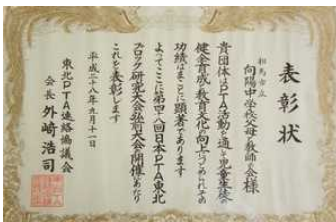 表彰状
相馬市立
向陽中学校父母と教師の会様
貴団体はPTA活動を通じ児童生徒の
健全育成と教育文化の向上につとめられその
功績はまことに顕著であります
よってここに第四十八回日本PTA東北
ブロック研究大会弘前大会開催にあたり
これを表彰します
平成二十八年九月十一日
東北PTA連絡協議会
会長 外崎浩司